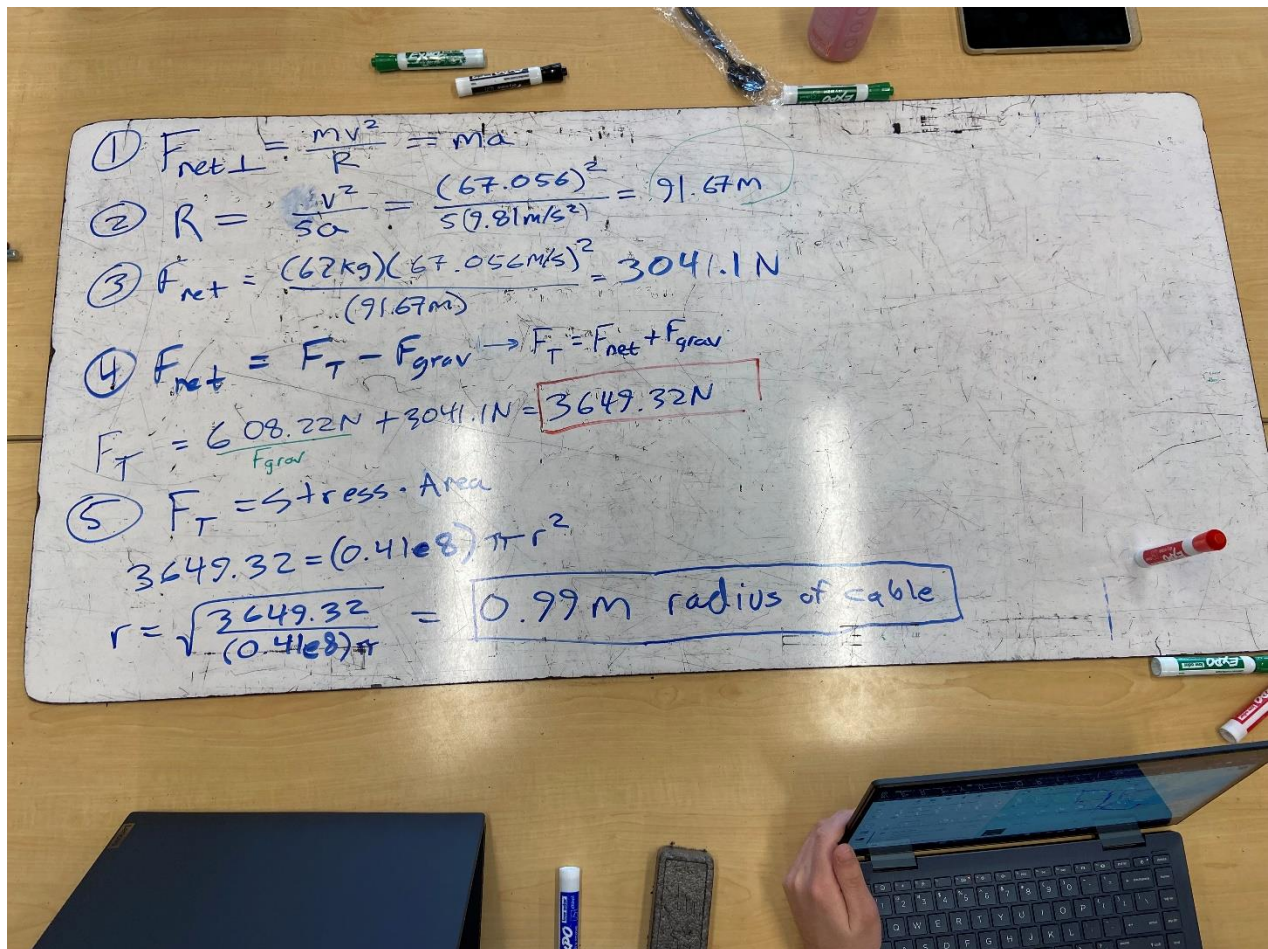 ① F_net⊥ = mv²/R = ma
② R = v²/5a = (67.056)²/5(9.81m/s²) = 91.67m
③ F_net = (62kg)(67.056m/s)²/(91.67m) = 3041.1 N
④ F_net = F_T - F_grav → F_T = F_net + F_grav
F_T = 608.22N + 3041.1N = 3649.32N
F_grav
⑤ F_T = Stress · Area
3649.32 = (0.41e8) π r²
r = √3649.32/(0.41e8)π = 0.99m radius of cable
EXPO
EXPO
EXPO
EXPO
EXPO